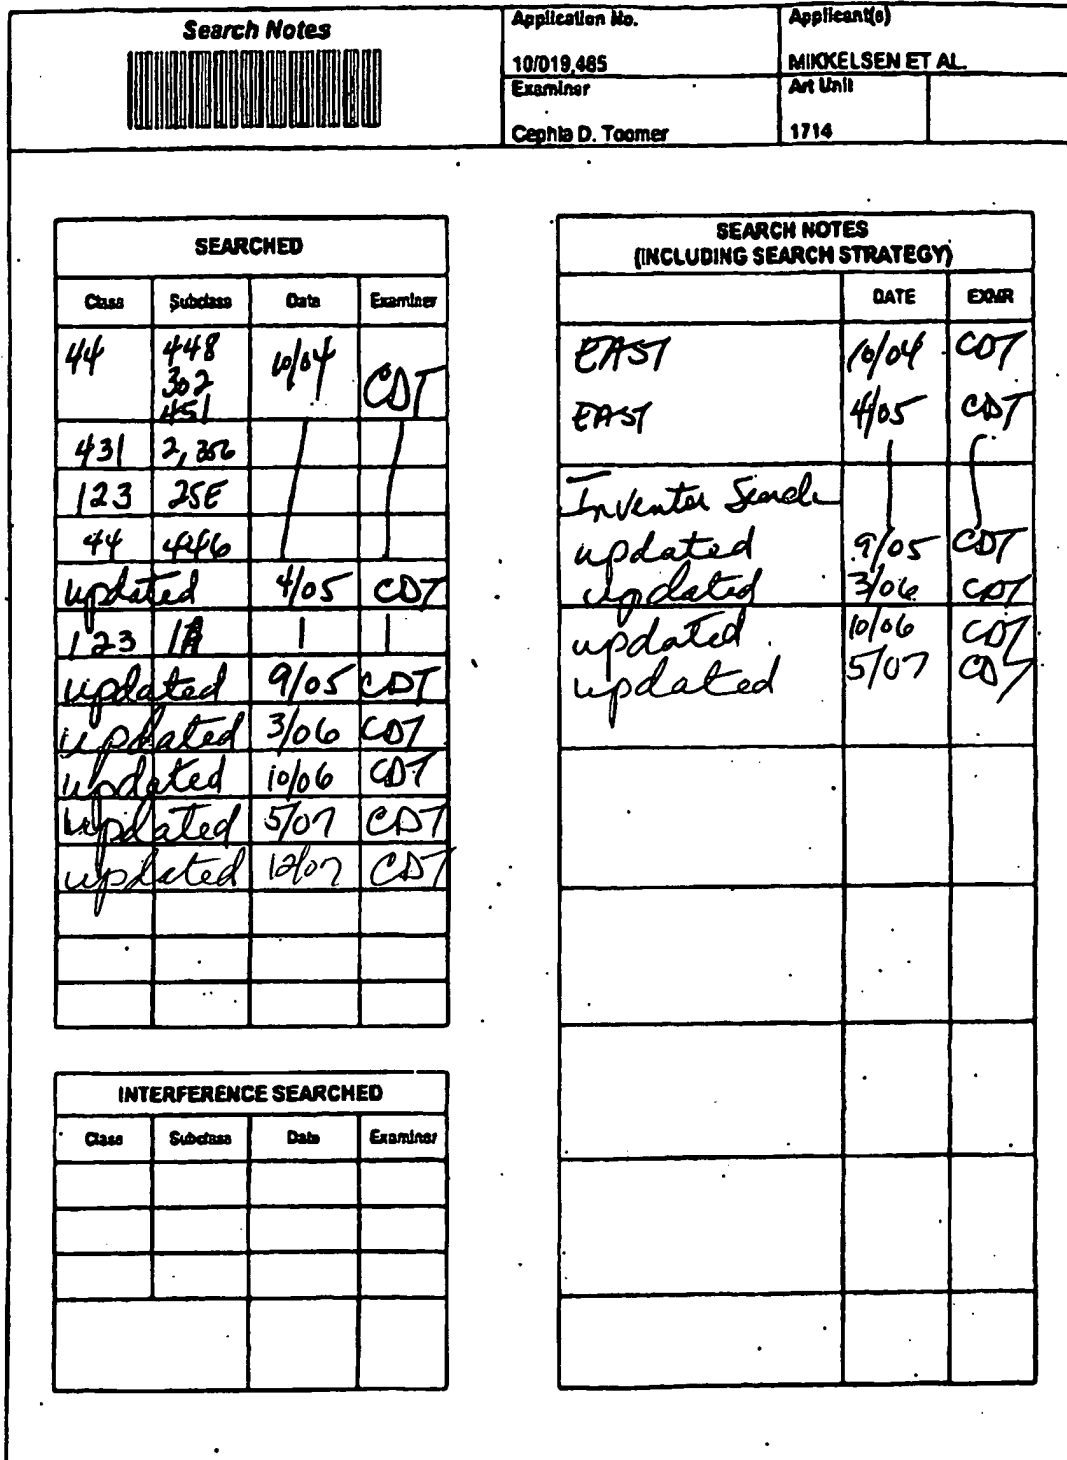 Search Notes
Application No.
Applicant(s)
10/019,485
MIKKELSEN ET AL.
Examiner
Art Unit
Cephia D. Toomer
1714
SEARCHED
Class Subclass Date Examiner
44 448 10/04 CDT
302
451
431 2, 356
123 25E
44 446
updated 4/05 CDT
123 1A
updated 9/05 CDT
updated 3/06 CDT
updated 10/06 CDT
updated 5/07 CDT
updated 12/07 CDT
INTERFERENCE SEARCHED
Class Subclass Date Examiner
SEARCH NOTES
(INCLUDING SEARCH STRATEGY)
DATE EXMR
EAST 10/04 CDT
EAST 4/05 CDT
Inventor Search
updated 9/05 CDT
updated 3/06 CDT
updated 10/06 CDT
updated 5/07 CDT